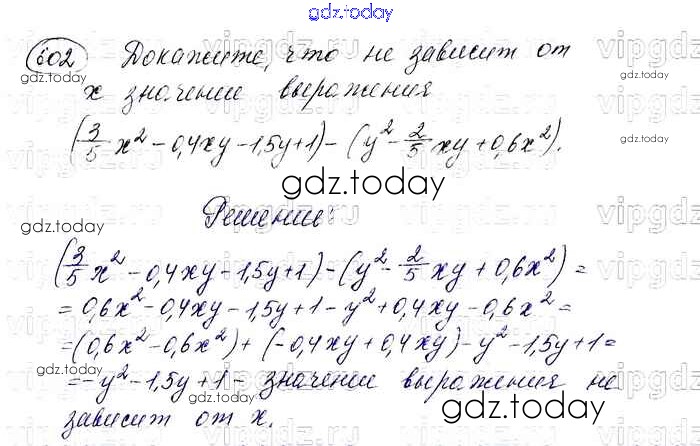 gdz.today
602 Докажите, что не зависит от
x значение выражения
(3/5 x² - 0,4xy - 1,5y + 1) - (y² - 2/5 xy + 0,6x²).
gdz.today
Решение:
(3/5 x² - 0,4xy - 1,5y + 1) - (y² - 2/5 xy + 0,6x²) =
= 0,6x² - 0,4xy - 1,5y + 1 - y² + 0,4xy - 0,6x² =
= (0,6x² - 0,6x²) + (-0,4xy + 0,4xy) - y² - 1,5y + 1 =
= -y² - 1,5y + 1 - значение выражения не
зависит от x.
gdz.today